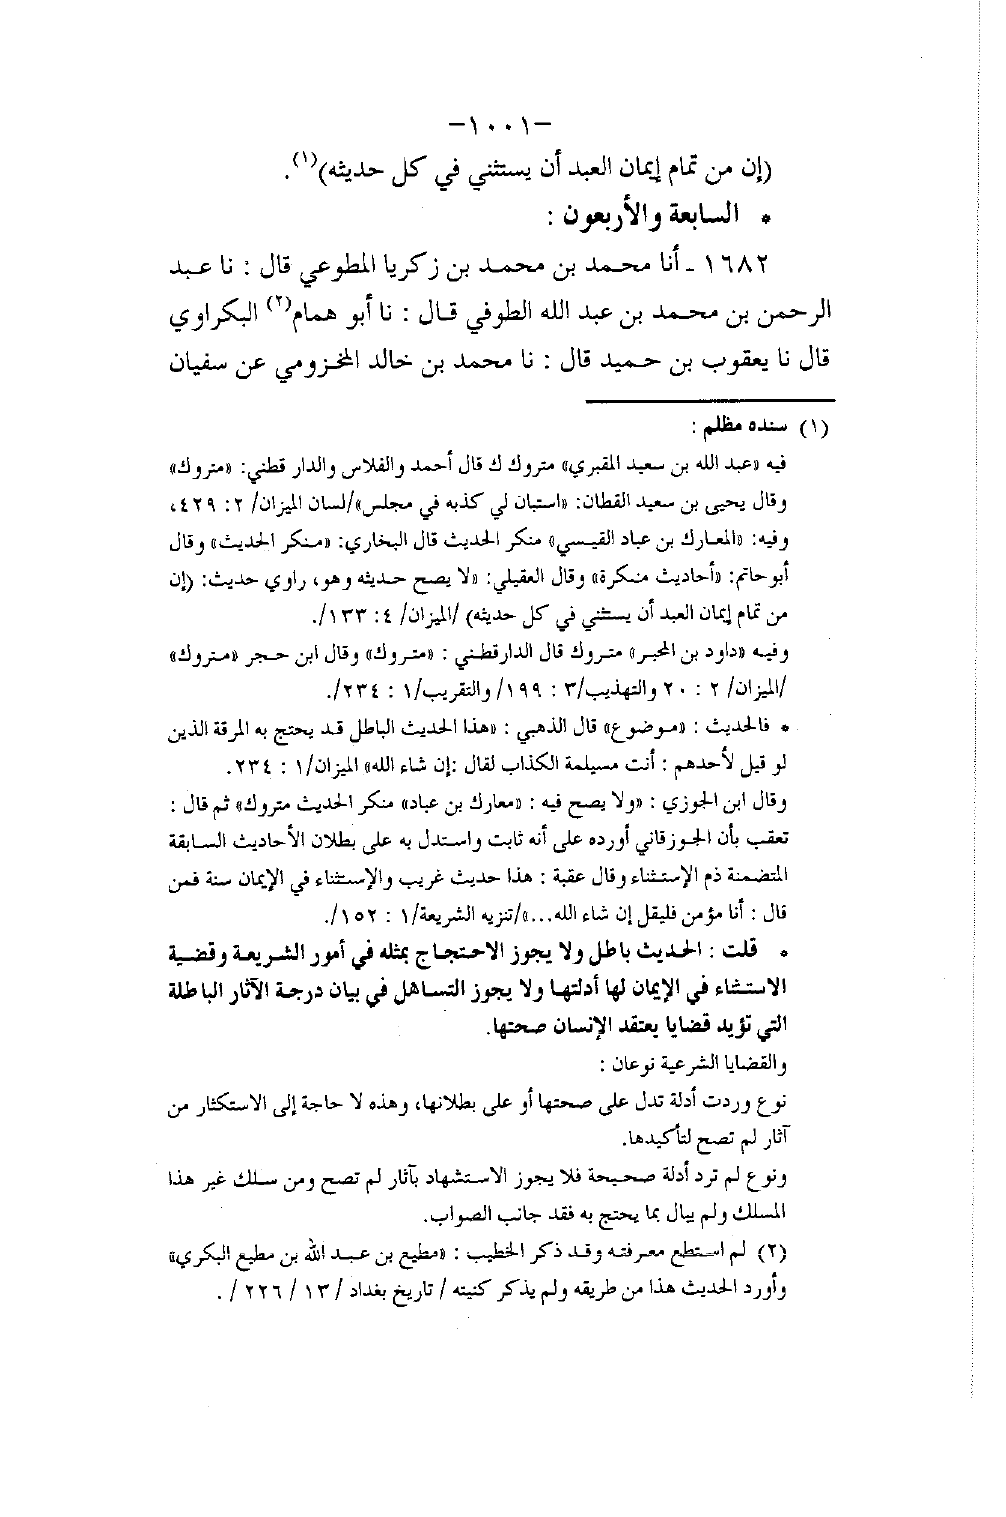 –١٠٠١–
(إن من تمام إيمان العبد أن يستثني في كل حديثه)(١).
* السابعة والأربعون :
١٦٨٢ ـ أنا محمد بن محمد بن زكريا المطوعي قال : نا عبد
الرحمن بن محمد بن عبد الله الطوفي قال : نا أبو همام(٢) البكراوي
قال نا يعقوب بن حميد قال : نا محمد بن خالد المخزومي عن سفيان
(١) سنده مظلم :
فيه «عبد الله بن سعيد المقبري» متروك ك قال أحمد والفلاس والدار قطني: «متروك»
وقال يحيى بن سعيد القطان: «استبان لي كذبه في مجلس»/لسان الميزان/ ٢: ٤٢٩،
وفيه: «المعارك بن عباد القيسي» منكر الحديث قال البخاري: «منكر الحديث» وقال
أبوحاتم: «أحاديث منكرة» وقال العقيلي: «لا يصح حديثه وهو، راوي حديث: (إن
من تمام إيمان العبد أن يستثني في كل حديثه) /الميزان/ ٤: ١٣٣/.
وفيه «داود بن المحبر» متروك قال الدارقطني : «متروك» وقال ابن حجر «متروك»
/الميزان/ ٢ : ٢٠ والتهذيب/٣ : ١٩٩/ والتقريب/١ : ٢٣٤/.
* فالحديث : «موضوع» قال الذهبي : «هذا الحديث الباطل قد يحتج به المرقة الذين
لو قيل لأحدهم : أنت مسيلمة الكذاب لقال :إن شاء الله» الميزان/١ : ٢٣٤.
وقال ابن الجوزي : «ولا يصح فيه : «معارك بن عباد» منكر الحديث متروك» ثم قال :
تعقب بأن الجوزقاني أورده على أنه ثابت واستدل به على بطلان الأحاديث السابقة
المتضمنة ذم الإستثناء وقال عقبة : هذا حديث غريب والإستثناء في الإيمان سنة فمن
قال : أنا مؤمن فليقل إن شاء الله...»/تنزيه الشريعة/١ : ١٥٢/.
* قلت : الحديث باطل ولا يجوز الاحتجاج بمثله في أمور الشريعة وقضية
الاستثناء في الإيمان لها أدلتها ولا يجوز التساهل في بيان درجة الآثار الباطلة
التي تؤيد قضايا يعتقد الإنسان صحتها.
والقضايا الشرعية نوعان :
نوع وردت أدلة تدل على صحتها أو على بطلانها، وهذه لا حاجة إلى الاستكثار من
آثار لم تصح لتأكيدها.
ونوع لم ترد أدلة صحيحة فلا يجوز الاستشهاد بآثار لم تصح ومن سلك غير هذا
المسلك ولم يبال بما يحتج به فقد جانب الصواب.
(٢) لم استطع معرفته وقد ذكر الخطيب : «مطيع بن عبد الله بن مطيع البكري»
وأورد الحديث هذا من طريقه ولم يذكر كنيته / تاريخ بغداد / ١٣ / ٢٢٦ / .